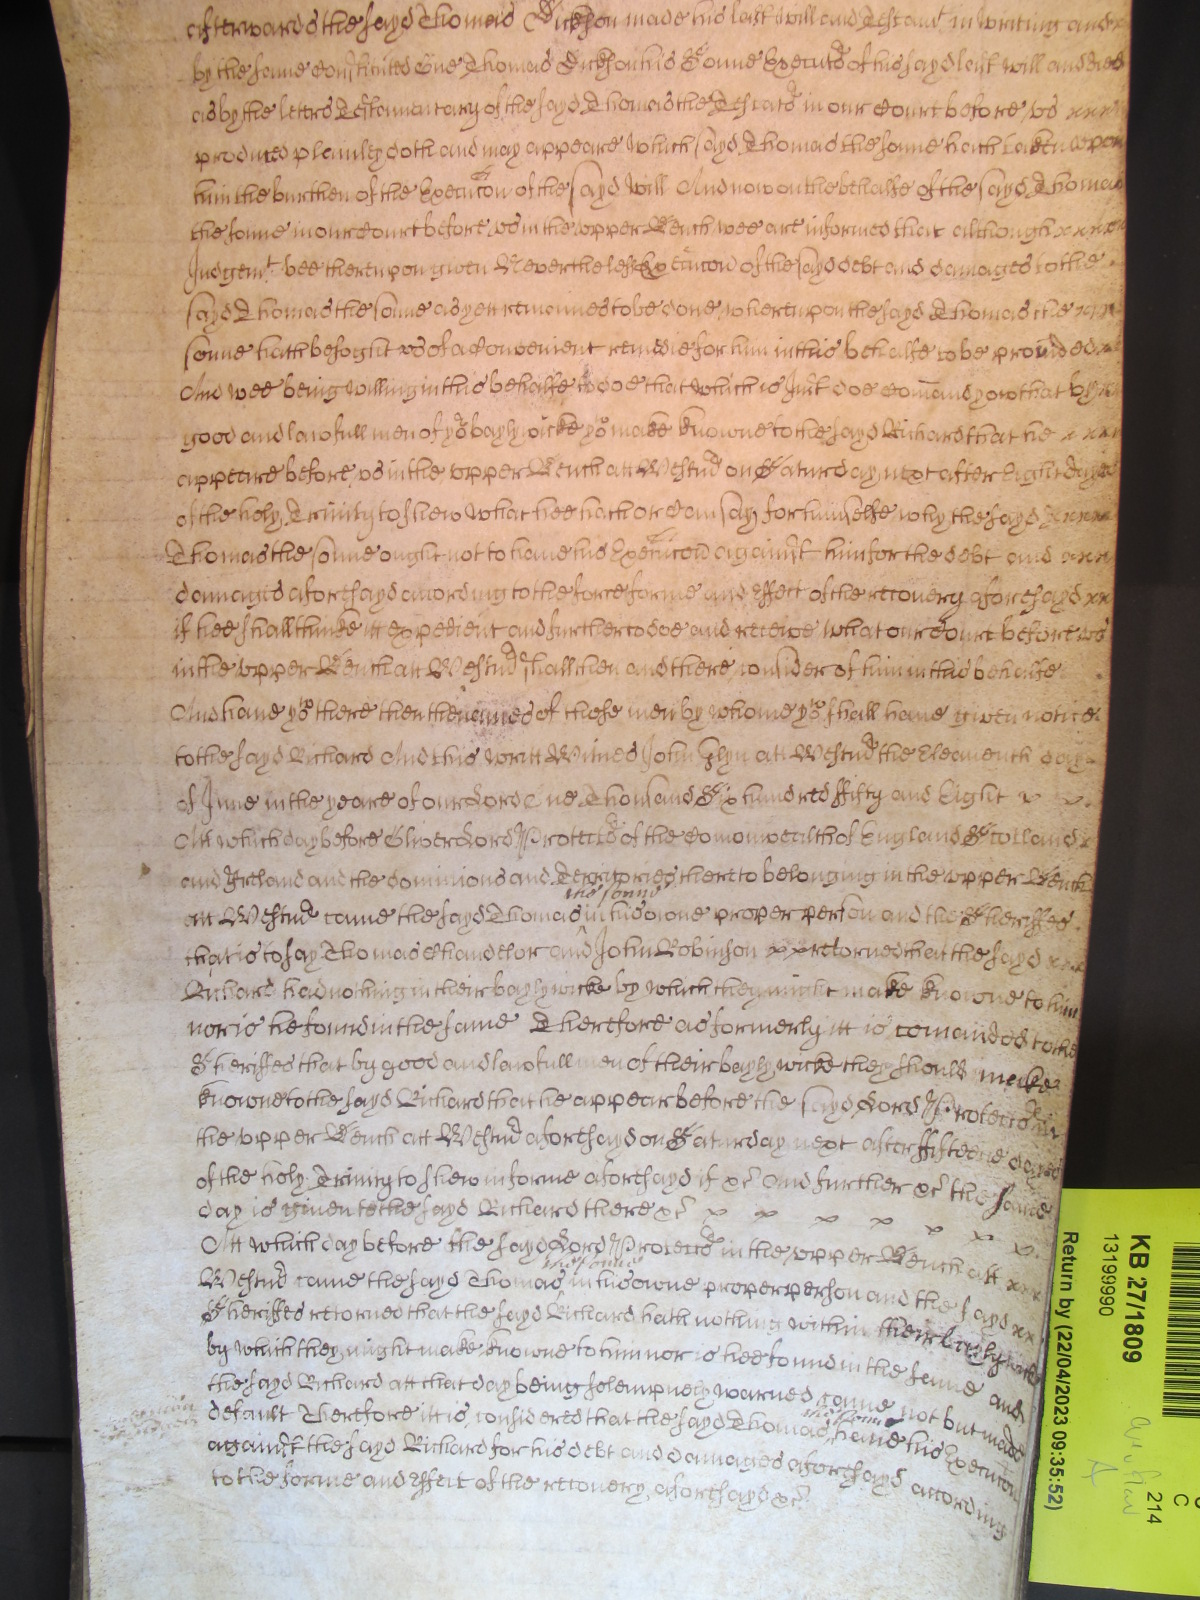 afterwards the sayd Thomas Dickson made his last will and Testamt in writing and x
by the same constituted One Thomas Dickson his Sonne Executor of his sayd last will and died
as by the letters Testamentary of the sayd Thomas the Testator in our Court before us xxx
produced plainley doth and may appeare Which sayd Thomas the sonne hath taken upon
him the burthen of the Execucon of the sayd Will And now on the behalfe of the sayd Thomas
the sonne in our Court before us in the upper Bench wee are informed that although xxxx
Judgemt bee thereupon given Neverthelesse Execucon of the sayd debt and damages to the
sayd Thomas the sonne as yett remaines to be done, whereupon the sayd Thomas the xxx
sonne hath besoght us of a Convenient remedie for him in this behalfe to be provided x
And wee being willing in this behalfe to doe that which is Just doe comand yow that by xx
good and lawfull men of yor baylywicke yow make knowne to the sayd Richard that he x xxx
appeare before us in the upper Bench att Westmr on Saturday next after Eight dayes
of the holy Trinity to shew what hee hath or can say for himselfe why the sayd xxxx
Thomas the sonne ought not to have his Execucon against him for the debt and xxx
damages aforesayd according to the force forme and effect of the recovery aforesayd xx
if hee shall thinke itt expedient and further to doe and receive what our Court before us
in the upper Bench att Westmr shall then and there consider of him in this behalfe
And have yow there then the names of those men by whome yow shall have given notice
to the sayd Richard And this writt Witnes John Glyn att Westmr the Eleaventh day
of June in the yeare of our Lord One Thousand Six hundred ffifty and Eight x x
Att which day before Oliver Lord Protector of the Comonwealth of England Scotland x
and Ireland and the dominions and Territories thereto belonging in the upper Bench
the sonne
att Westmr came the sayd Thomas in his owne proper person and the Sheriffes
that is to say Thomas Chandelor and John Robinson xx retorned that the sayd xxx
Richard had nothing in their baylywicke by which they might make knowne to him
nor is he found in the same Therefore as formerly itt is comanded to the
Sheriffes that by good and lawfull men of their baylywicke they should make
knowne to the sayd Richard that he appear before the sayd Lord Protector in
the upper Bench att Westmr aforesayd on Saturday next after ffifteene dayes
of the holy Trinity to shew in forme aforesayd if &c And further &c the same
day is given to the sayd Richard there &c x x x x x x x
Att which day before the sayd Lord Protector in the upper Bench att xxx
the sonne
Westmr came the sayd Thomas in his owne proper person and the sayd xx
Sheriffes retorned that the sayd Richard hath nothing within their baylywicke
by which they might make knowne to him nor is hee found in the same And
the sayd Richard att that day being solempnely warned came not but made
the sonne
default Therefore itt is considered that the sayd Thomas have his Execucon
against the sayd Richard for his debt and damages aforesayd according
to the forme and effect of the recovery aforesayd &c
KB 27/1809
13199990
Return by (22/04/2023 09:35:52)
214
C